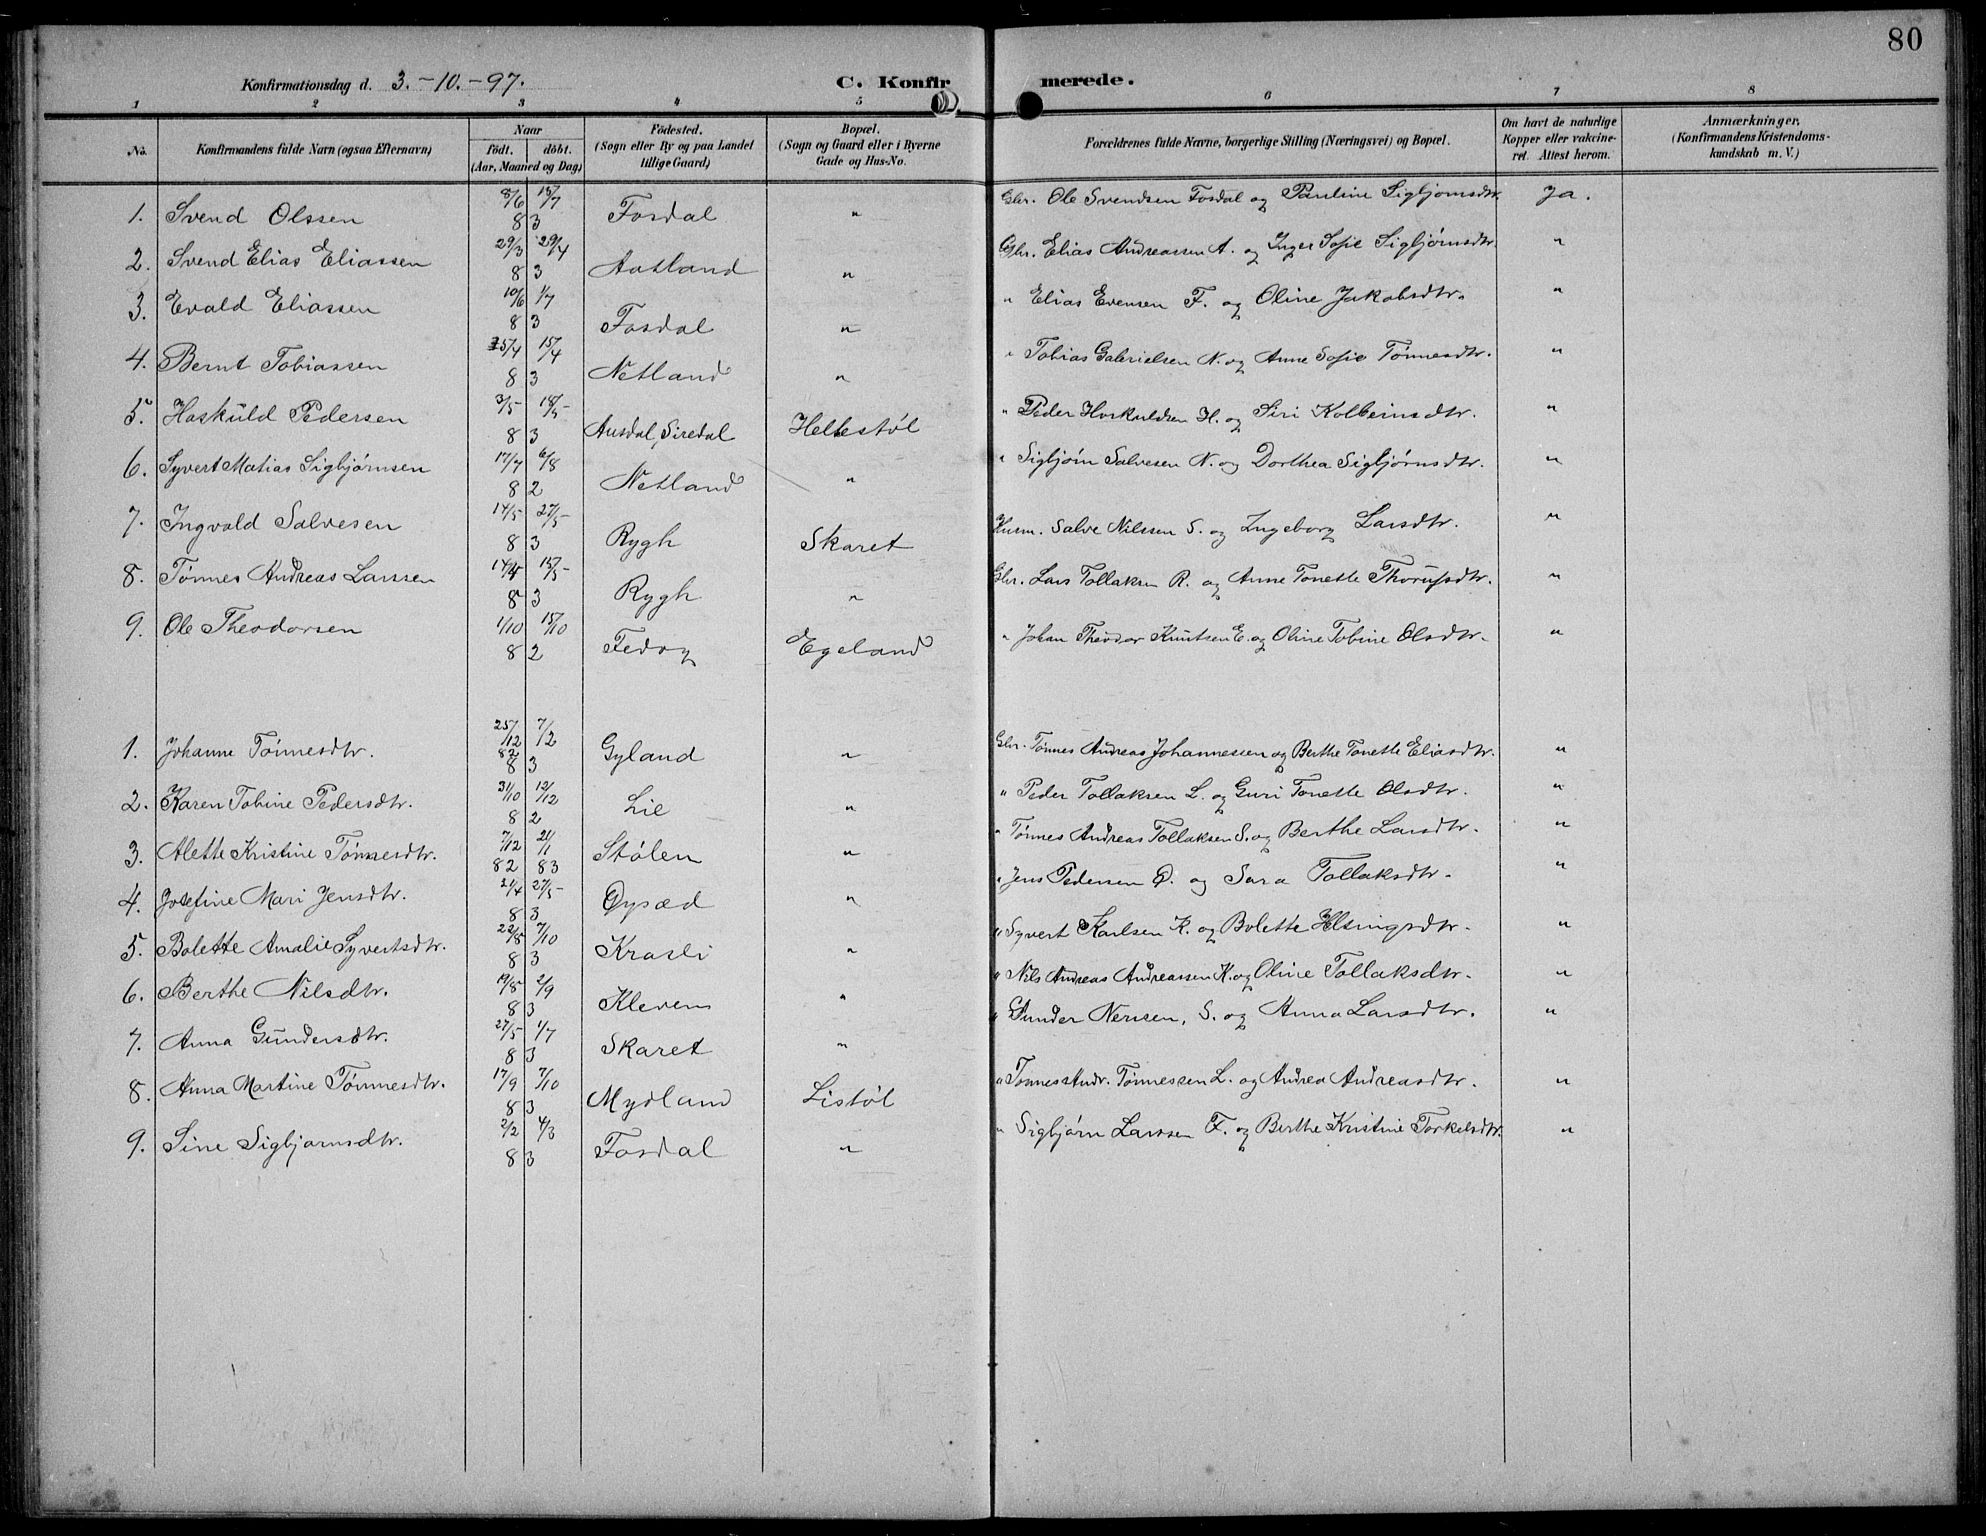 80
Konfirmationsdag d. 3.-10.-97.
C. Konfirmerede.
1 2 3 4 5 6 7 8
No. Konfirmandens fulde Navn (ogsaa Efternavn) Naar födt. döbt. (Aar, Maaned og Dag) Födested. (Sogn eller By og paa Landet tillige Gaard) Bopæl. (Sogn og Gaard eller i Byerne Gade og Hus-No. Forældrenes fulde Navne, borgerlige Stilling (Næringsvei) og Bopæl. Om havt de naturlige Kopper eller vaccineret. Attest herom. Anmærkninger. (Konfirmandens Kristendomskundskab m. V.)
1. Svend Olssen 8/6 15/7 83 Fosdal " Gbr. Ole Svendsen Fosdal og Pauline Sigbjørnsdtr. Ja.
2. Svend Elias Eliassen 29/3 29/4 83 Aatland " Gbr. Elias Andreassen A. og Inger Sofie Sigbjørnsdtr. "
3. Evald Eliassen 10/6 1/7 83 Fosdal " " Elias Evensen F. og Oline Jakobsdtr. "
4. Bernt Tobiassen 5/4 15/4 83 Netland " " Tobias Gabrielsen N. og Anne Sofie Tønnesdtr. "
5. Hoskuld Pedersen 3/5 18/5 83 Ausdal, Siredal Hellestøl " Peder Hoskuldsen H. og Siri Kolbeinsdtr. "
6. Syvert Matias Sigbjørnsen 17/7 6/8 82 Netland " " Sigbjørn Salvesen N. og Dorthea Sigbjørnsdtr. "
7. Ingvald Salvesen 14/5 27/5 83 Rygh Skaret Husm. Salve Nilssen S. og Ingeborg Larsdtr. "
8. Tønnes Andreas Larssen 14/4 15/5 83 Rygh " Gbr. Lars Tollaksen R. og Anne Tonette Thorufsdtr. "
9. Ole Theodorsen 1/10 15/10 82 Fedog Egeland " Johan Theodor Knutsen E. og Oline Tobine Olsdtr. "
1. Johanne Tønnesdtr. 25/12 82 7/2 83 Gyland " Gbr. Tønnes Andreas Johannessen og Berthe Tonette Eliasdtr. "
2. Karen Tobine Pedersdtr. 31/10 12/12 82 Lie " " Peder Tollaksen L. og Guri Tonette Olsdtr. "
3. Alette Kristine Tønnesdtr. 7/12 82 21/1 83 Stølen " " Tønnes Andreas Tollaksen S. og Berthe Larsdtr. "
4. Josefine Mari Jensdtr. 21/4 27/5 83 Øysæd " " Jens Pedersen Ø. og Sara Tollaksdtr. "
5. Bolette Amalie Syvertsdtr. 22/8 7/10 83 Krasli " " Syvert Karlsen K. og Bolette Helsingsdtr. "
6. Berthe Nilsdtr. 19/8 2/9 83 Kleven " " Nils Andreas Andreassen K. og Oline Tollaksdtr. "
7. Anna Gundersdtr. 27/5 1/7 83 Skaret " " Gunder Nerisen, S. og Anna Larsdtr. "
8. Anna Martine Tønnesdtr. 17/9 7/10 83 Mydland Listøl " Tønnes Andr. Tønnessen L. og Andrea Andreasdtr. "
9. Sine Sigbjørnsdtr. 2/2 4/3 83 Fosdal " " Sigbjørn Larssen F. og Berthe Kristine Torkelsdtr. "